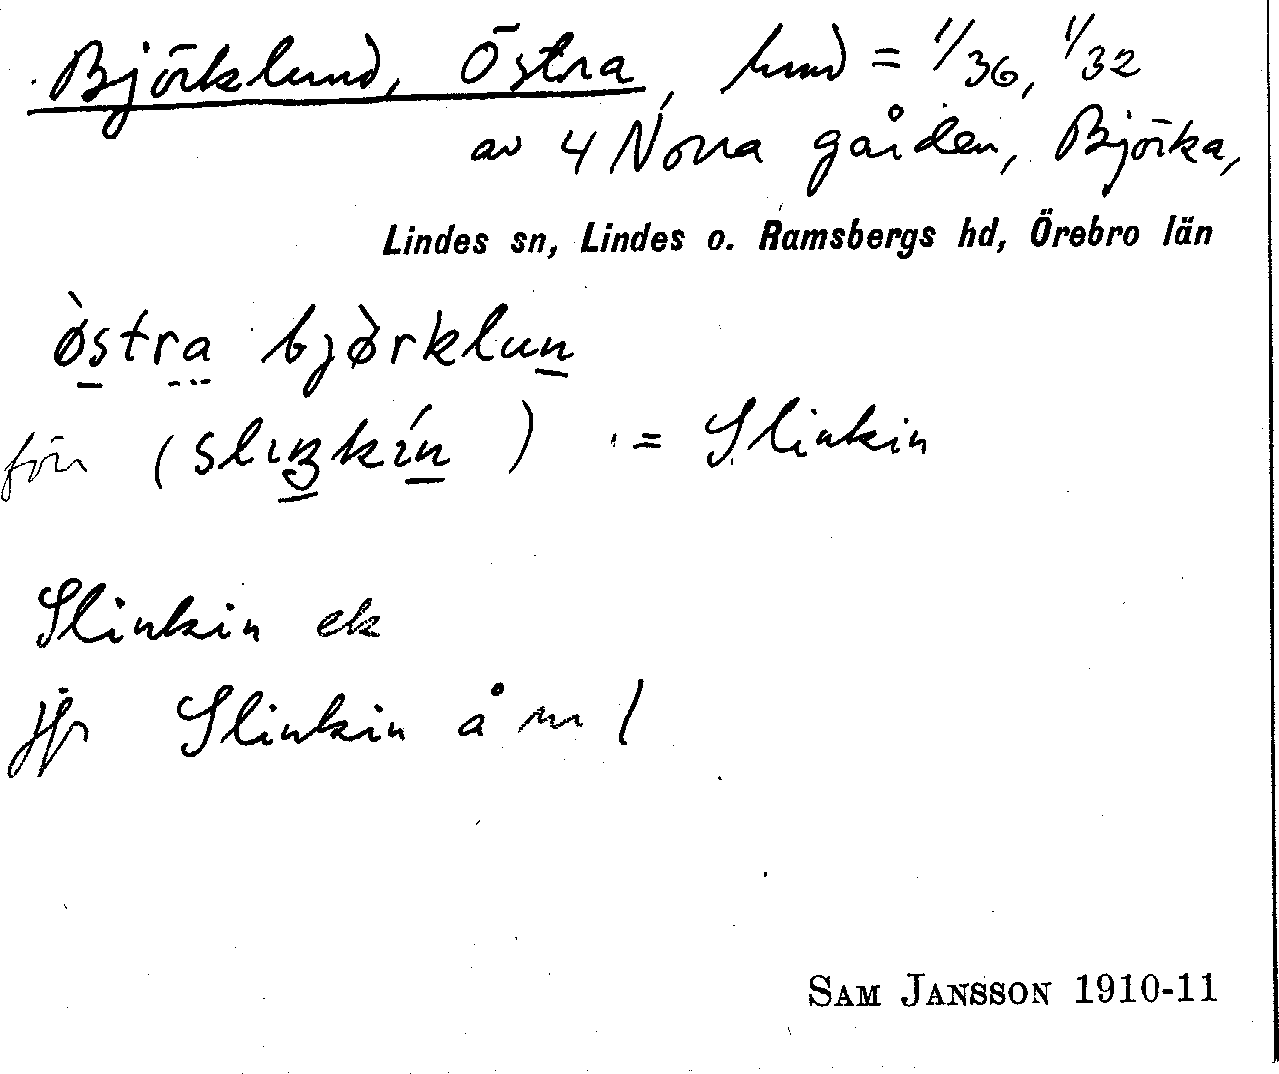 Björklund, Östra, hmd = 1/36, 1/32
av 4 Norra gården, Björka,
Lindes sn, Lindes o. Ramsbergs hd, Örebro län
ø̀stra bjø̀rklun
förr (slıŋkín) = Slinkin
Slinkin ek
jfr Slinkin å nr 1
Sam Jansson 1910-11